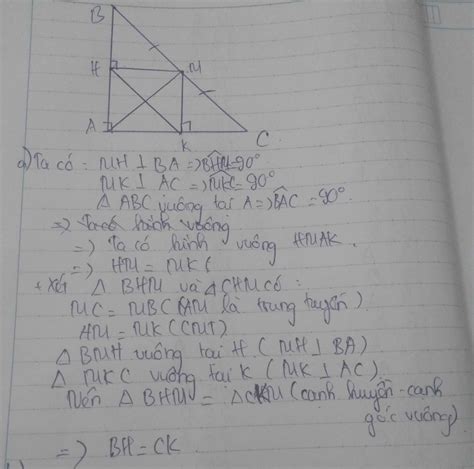 B
H
M
A
K
C
a) Ta có: MH ⊥ BA => BHM = 90°
MK ⊥ AC => MKC = 90°
△ ABC vuông tại A => BAC = 90°
=> Ta có hình vuông
=> Ta có hình vuông HMAK.
=> HM = MK (
+ Xét △ BHM và △CHM có:
MC = MB (AM là trung tuyến)
HM = MK (CMT)
△ BMH vuông tại H (MH ⊥ BA)
△ MKC vuông tại K (MK ⊥ AC)
Nên △ BHM = △CKM (cạnh huyền - cạnh
góc vuông)
=> BH = CK